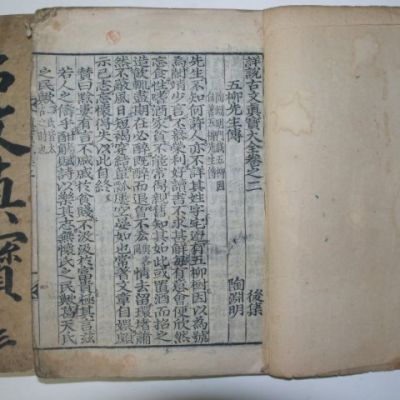 詳說古文眞寶大全卷之二
後集
五柳先生傳
陶淵明
先生不知何許人亦不詳其姓字宅邊有五柳樹因以為號
焉閑靖少言不慕榮利好讀書不求甚解每有意會便欣然
忘食性嗜酒家貧不能常得親舊知其如此或置酒而招之
造飮輒盡期在必醉旣醉而退曾不吝情去留環堵蕭
然不蔽風日短褐穿結簞瓢屢空晏如也常著文章自娛頗
示己志忘懷得失以此自終
贊曰黔婁有言不戚戚於貧賤不汲汲於富貴極其言玆
若人之儔乎酣觴賦詩以樂其志無懷氏之民歟葛天氏
之民歟
古文眞寶